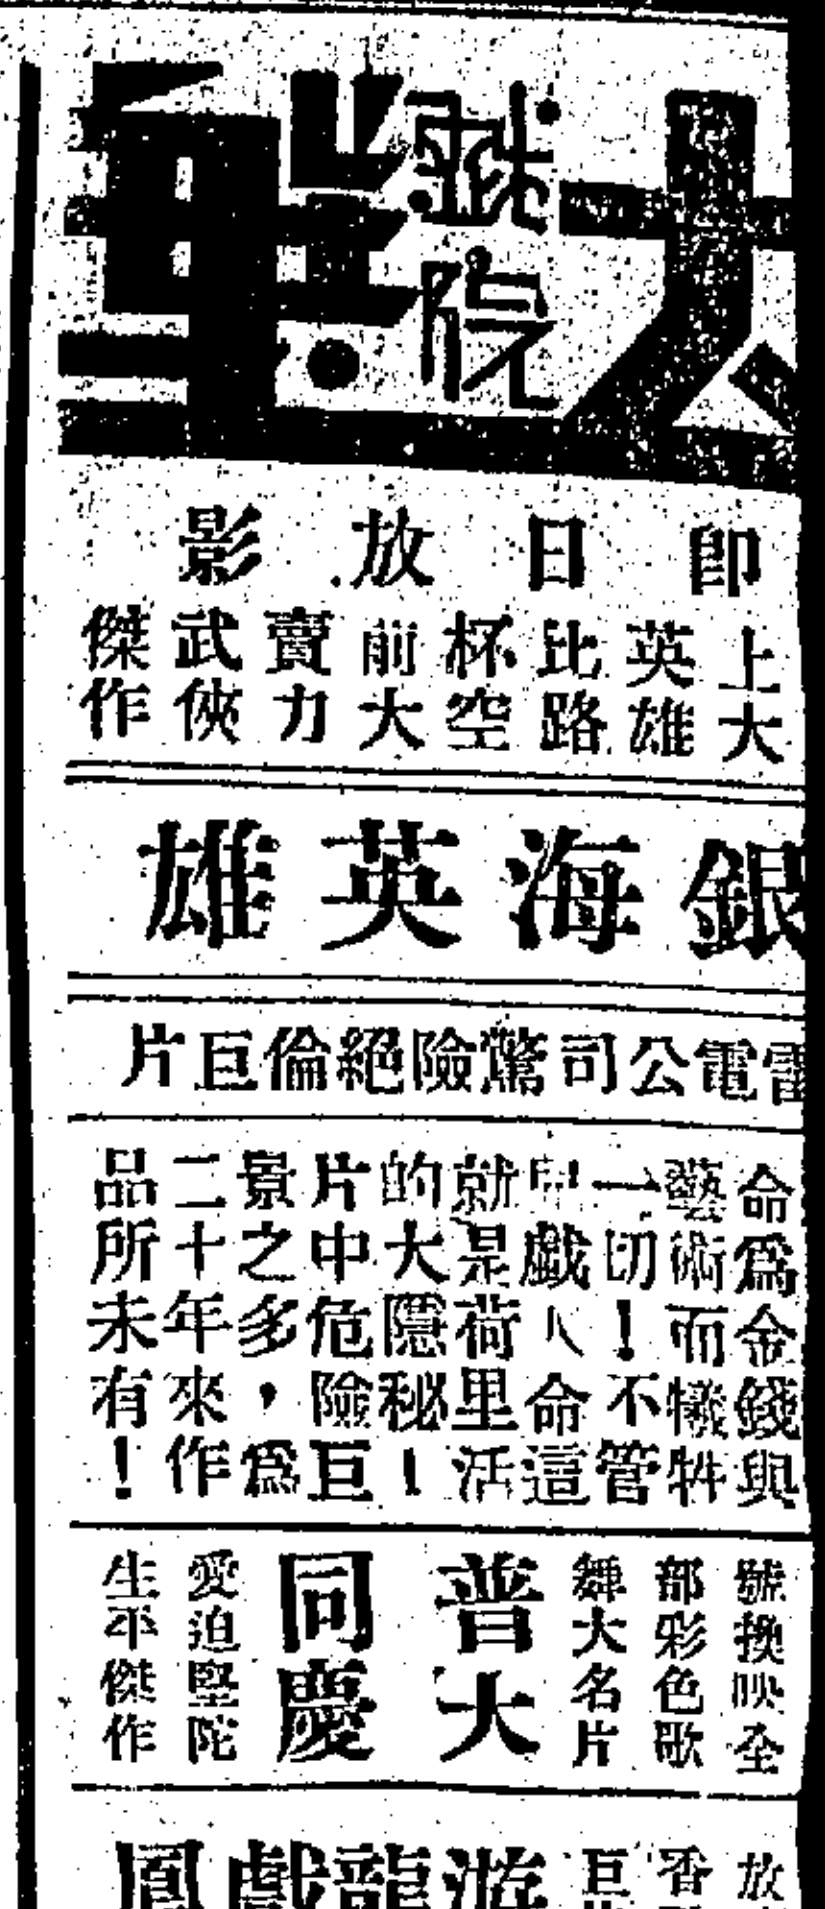 大
戲院
即日放影
上大
英雄
比路
杯空
前大
賣力
武俠
傑作
銀海英雄
電公司驚險絕倫巨片
命為金錢與
藝術而犧牲
一切！不管
戲人命這
就是荷里活
的大隱秘！
片中危險巨
景之多，為
二十年來作
品所未有！
號換映全
部彩色歌
舞大名片
普大
同慶
愛迫堅陀
生平傑作
放
香
巨
游龍戲鳳